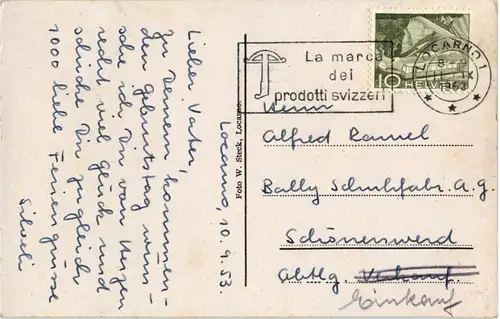 Locarno, 10.9.53.
Lieber Vater,
Zu Deinem kommen-
den Geburtstag wün-
sche ich Dir von Herzen
recht viel Glück und
schicke Dir zugleich
1000 liebe Feriengrüsse
Silveli
Foto W. Steck, Locarno.
La marca
dei
prodotti svizzeri
LOCARNO 1
1953
10
HELVETIA
Herrn
Alfred Ramel
Bally Schuhfabr. A.G.
Schönenwerd
Abtlg. Verkauf
Einkauf